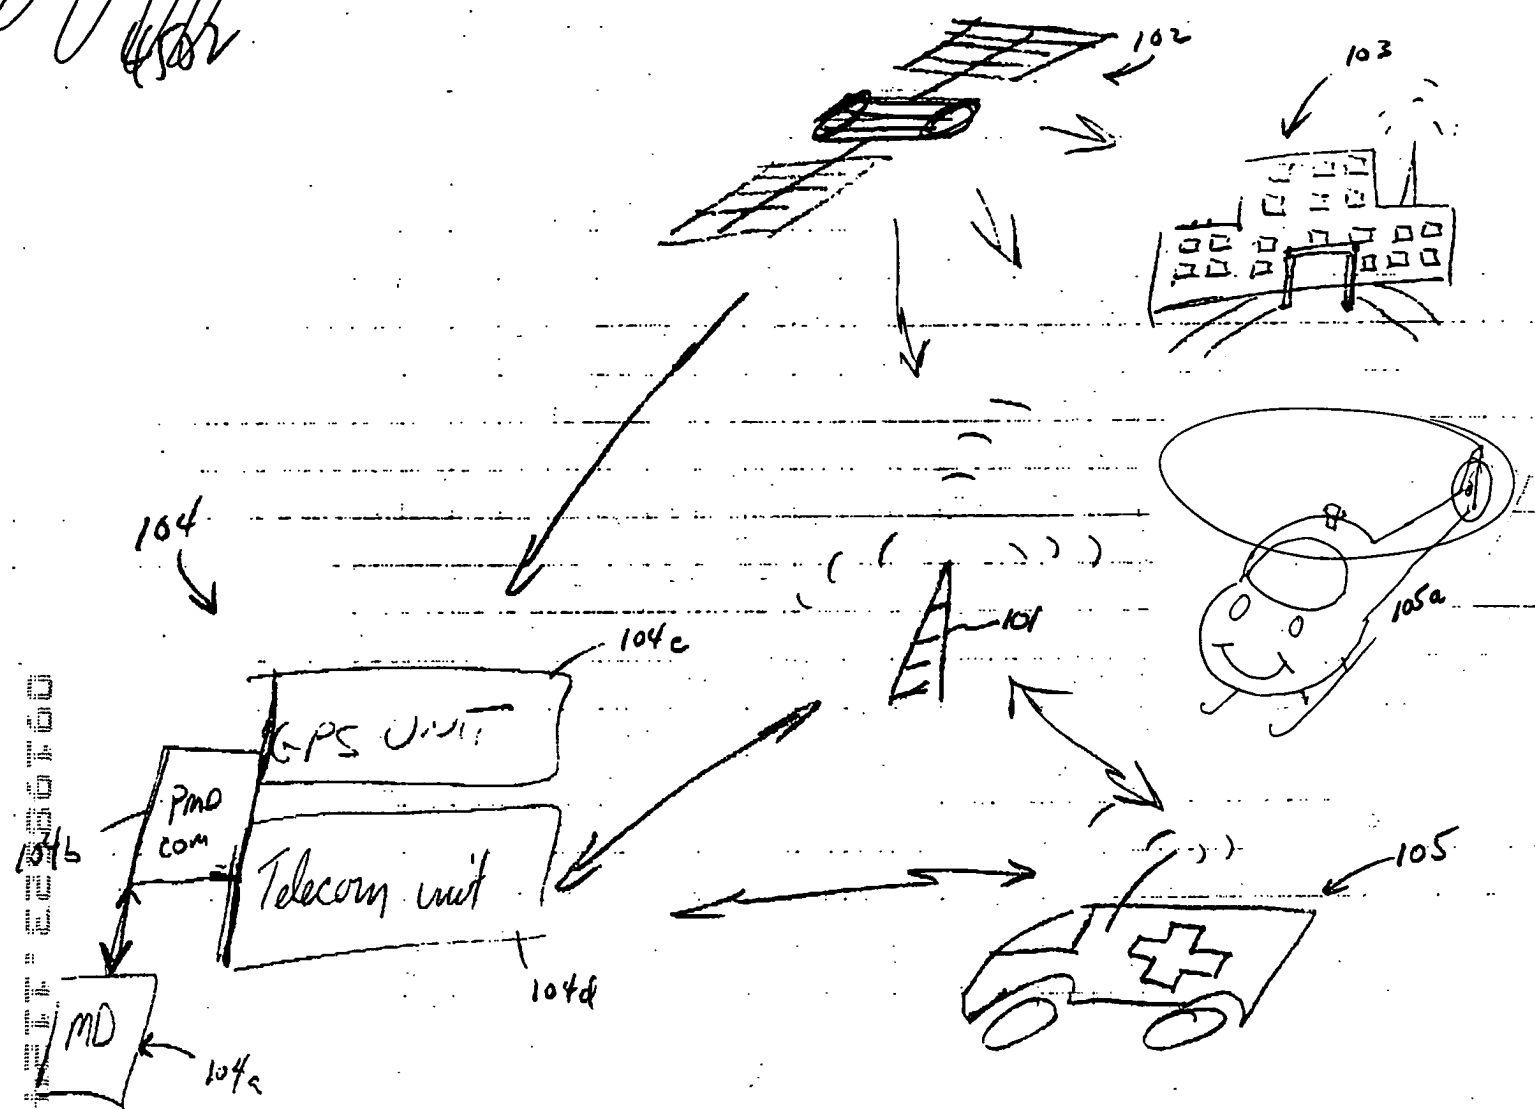 102
103
104
104c
101
105a
GPS UNIT
PMD
com
104b
105
Telecom unit
104d
MD
104a